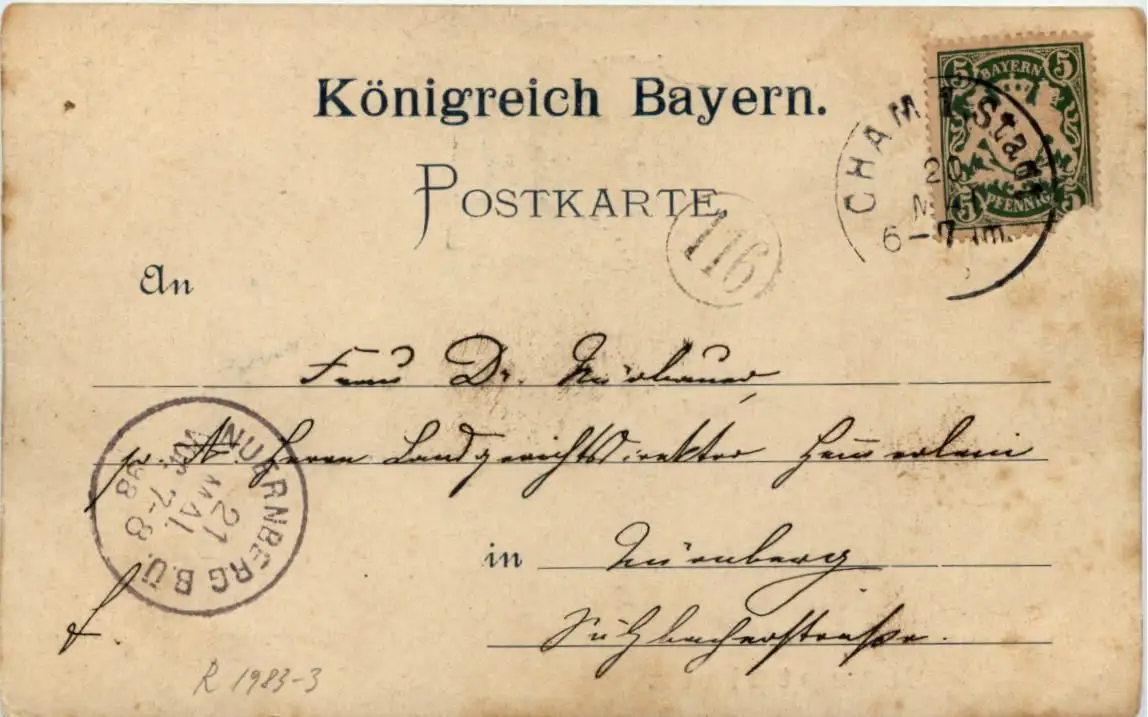 Königreich Bayern.
POSTKARTE.
5 BAYERN 5
5 PFENNIG 5
CHAM 1. Stadt
20
MAI
6-7 Nm.
116
An
Frau Dr.
p. A. Herrn Landgerichtsdirektor
in Nürnberg
Sulzbacherstraße.
NUERNBERG B.Ü.
21
MAI.
7-8
VM
98
f.
R 1983-3